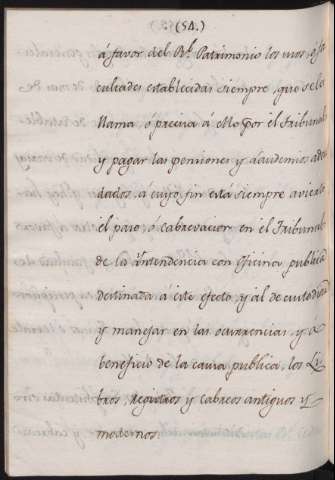 (54.)
á favor del Rl. Patrimonio los usos, ó fa
cultades establecidas siempre, que se les
llama, ó precisa á ello por el Tribunal
y pagar las pensiones y Laudemios adeu
dados, á cuyo fin está siempre avierto
el paso, ó cabrevacion en el Tribunal
de la Intendencia con oficina publica
destinada á este efecto, y al de custodiar
y manejar en las ocurrencias, y á
beneficio de la causa publica, los Li
bros, registros y cabreos antiguos y
modernos.